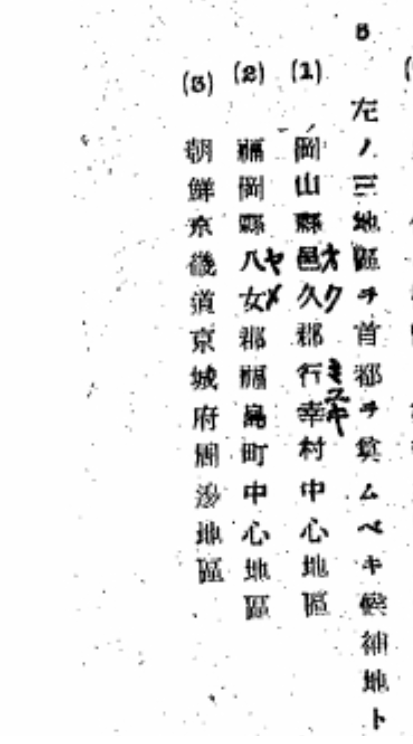 B
左ノ三地區ヲ首都ヲ奠ムベキ候補地ト
(1) 岡山縣邑久郡行幸村中心地區
オク
ミユキ
(2) 福岡縣八女郡福島町中心地區
ヤメ
(3) 朝鮮京畿道京城府周邊地區